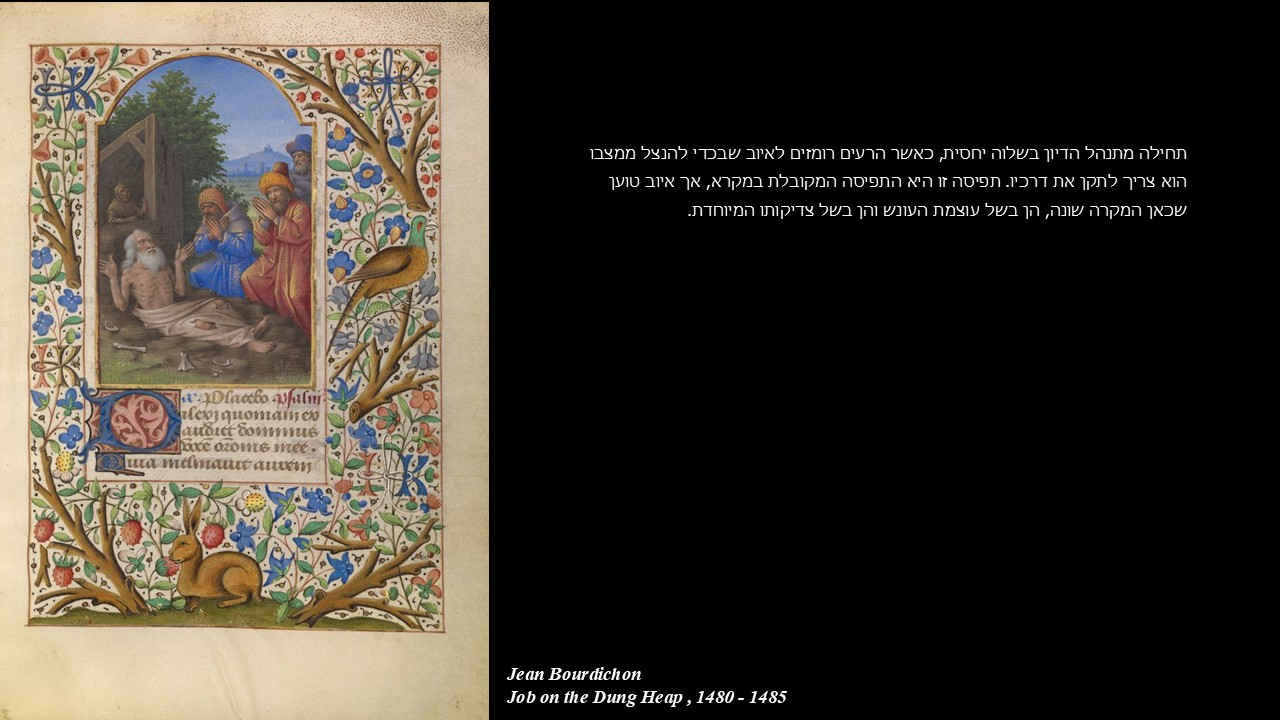 תחילה מתנהל הדיון בשלוה יחסית, כאשר הרעים רומזים לאיוב שבכדי להנצל ממצבו
הוא צריך לתקן את דרכיו. תפיסה זו היא התפיסה המקובלת במקרא, אך איוב טוען
שכאן המקרה שונה, הן בשל עוצמת העונש והן בשל צדיקותו המיוחדת.
Placebo psalm
ilexi quoniam ex
audiet dominus
vocē orōnis mee.
Quia inclinavit aurem
Jean Bourdichon
Job on the Dung Heap , 1480 - 1485